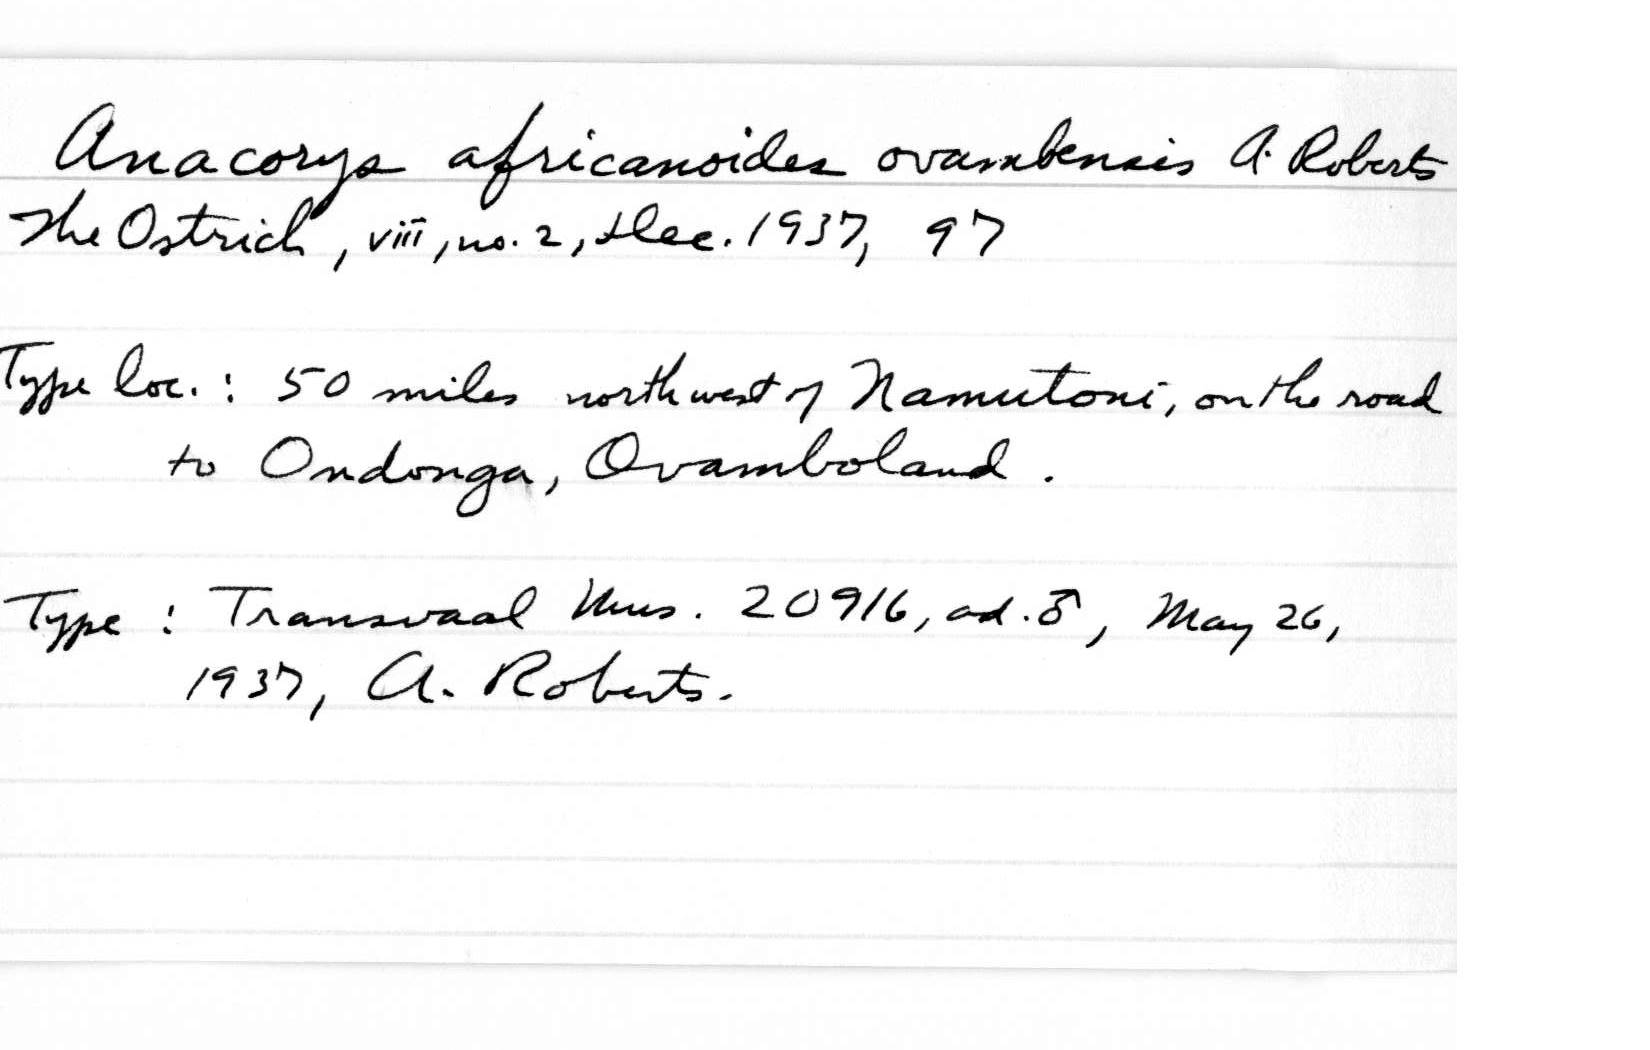 Anacorys africanoides ovambensis A. Roberts
The Ostrich, viii, no. 2, Dec. 1937, 97
Type loc. : 50 miles northwest of Namutoni, on the road
to Ondonga, Ovamboland .
Type : Transvaal Mus. 20916, ad. ♂, May 26,
1937, A. Roberts.